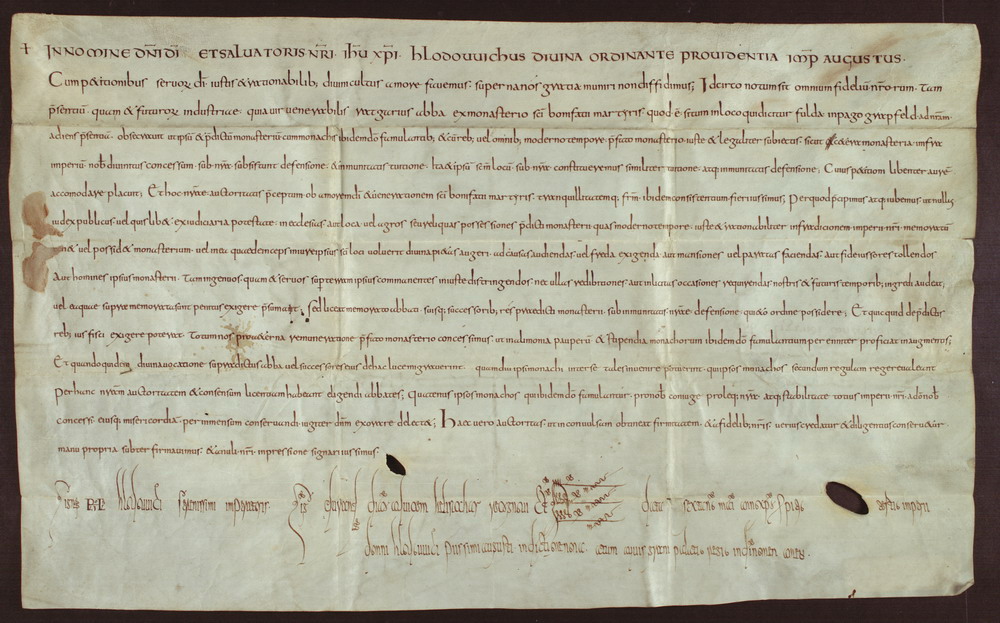 + IN NOMINE DNI DI ET SALUATORIS NRI IHU XPI HLODOUUICHUS DIUINA ORDINANTE PROUIDENTIA IMP AUGUSTUS
Cum petitionibus seruorū dī iustis & rationabilib; diuini cultus amore fauemus · superna nos gratia muniri non diffidimus; Idcirco notum sit omnium fidelium nrorum · tam
p̄sentiū · quam & futurorū industriae · quia uir uenerabilis ratgarius abba ex monasterio sc̄i bonifatii martyris quod ē situm in loco qui dicitur fulda in pago grapfeld · ad nram
adiens p̄sentiā · obsecrauit ut ipsū & p̄dictū monasteriū cum monachis ibidem dō famulantib; & rebus uel omnib; moderno tempore p̄fato monasterio iuste & legaliter subiectis · sicut & cetera monasteria infra
imperiū nob diuinitus concessum · sub nrā subsistunt defensione · & inmunitatis tuitione · Ita & ipsū sc̄m locū · sub nrā constitueremus similiter tuitione · atq; inmunitatis defensione; Cuius petitioni libenter aurē
accomodare placuit; Et hoc nr̄ae auctoritatis p̄ceptum ob amorem dī & uenerationem sc̄i bonifatii martyris · & tranquillitatemq; frm̄ ibidem consistentium fieri iussimus; Per quod p̄cipimus atq; iubemus · ut nullus
iudex publicus uel quislib& ex iudiciaria potestate · in ecclesias aut loca uel agros seu reliquas possessiones p̄dicti monasterii quas moderno tempore · iuste & rationabiliter infra dicionem imperii nri · memoratū
uel possid& monasterium · uel in ea quae deinceps in iure ipsius sc̄i loci uoluerit diuina pi&as augeri · ad causas audiendas · uel freda exigenda aut mansiones · uel paratas faciendas · aut fideiussores tollendos
Aut homines ipsius monasterii · Tam ingenuos · quam & seruos super terram ipsius commanentes iniuste distringendos · nec ullas redibitiones · aut inlicitas occasiones requirendas nostris & futuris temporib; ingredi audeat,
uel ea quae supra memorata sunt penitus exigere p̄sumat; Sed liceat memorato abbati · suisq; successorib; res praedicti monasterii · sub inmunitatis nrae · defensione · quieto ordine possidere; Et quicquid de p̄dictis
reb; ius fisci exigere poterat · Totum nos pro aeterna remuneratione p̄fato monasterio concessimus · ut in alimonia pauperū & stipendia monachorum ibidem dō famulantium perenniter proficiat in augmentis;
Et quandoquidem diuina uocatione supradictus abba uel successores eius de hac luce migrauerint · quamdiu ipsi monachi inter se tales inuenire potuerint · qui ipsos monachos secundum regulam regere ualeant
Per hanc nram auctoritatem & consensum licentiam habeant eligendi abbates; Quatenus ipsos monachos qui ibidem dō famulantur · pro nob coniuge proleq; nra atq; stabilitate totius imperii nri · a dō nob
concessi · eiusq; misericordia · per inmensum conseruandi iugiter dnm exorare delect&; Haec uero auctoritas · ut inconuulsam obtineat firmitatem · & a fidelib; nris uerius credatur & diligentius conseru&ur
manu propria subter firmauimus · & anuli nri impressione signari iussimus
Signū hludouuici serenissimi imperatoris helisachar recognoui Et data sexto non mai anno xpo propitio imperii
domni hludouuici piissimi augusti indictione nona actum aquisgrani palatio regio in di nomine amen